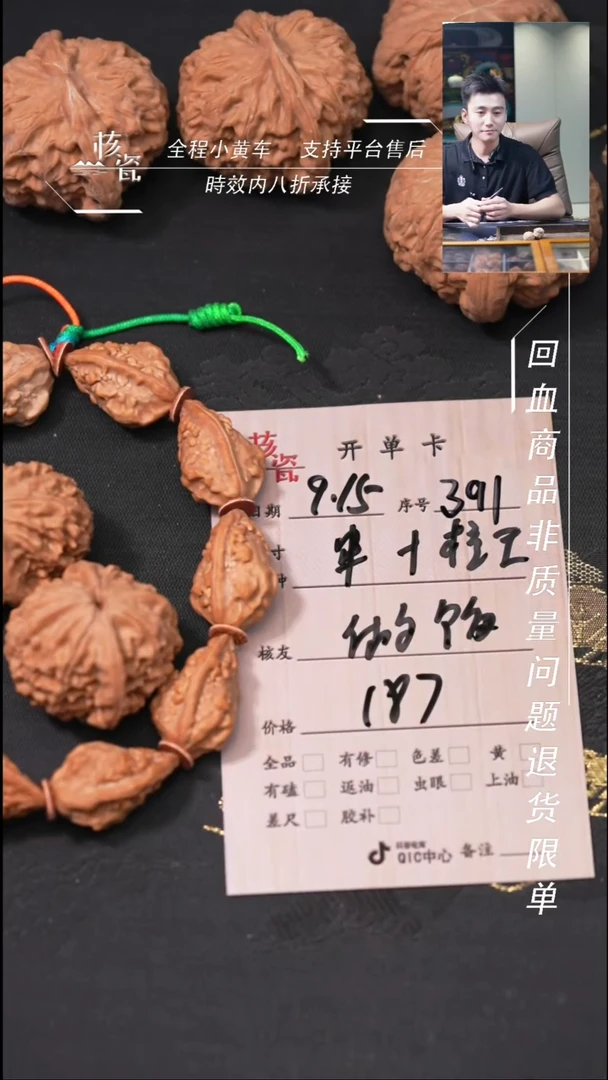 核瓷
全程小黄车 支持平台售后
時效内八折承接
回血商品非质量问题退货限单
核瓷
开单卡
日期 9.15 序号 391
寸
种
核友
价格 187
全品 有修 色差 黄
有磕 返油 虫眼 上油
差尺 胶补
抖音电商
QIC中心 备注